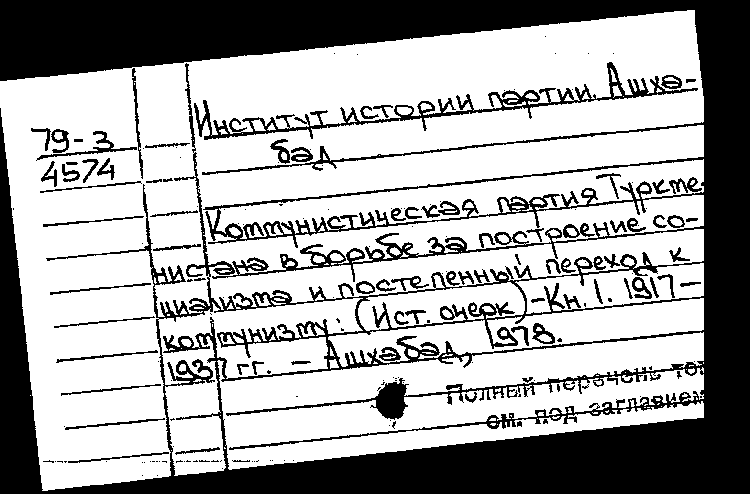 79-3
4574
Институт истории партии. Ашха-
бад
Коммунистическая партия Туркме-
нистана в борьбе за построение со-
циализма и постепенный переход к
коммунизму: (Ист. очерк)-Кн. 1. 1917-
1937 гг. - Ашхабад, 1978.
Полный перечень то
см. под заглавием